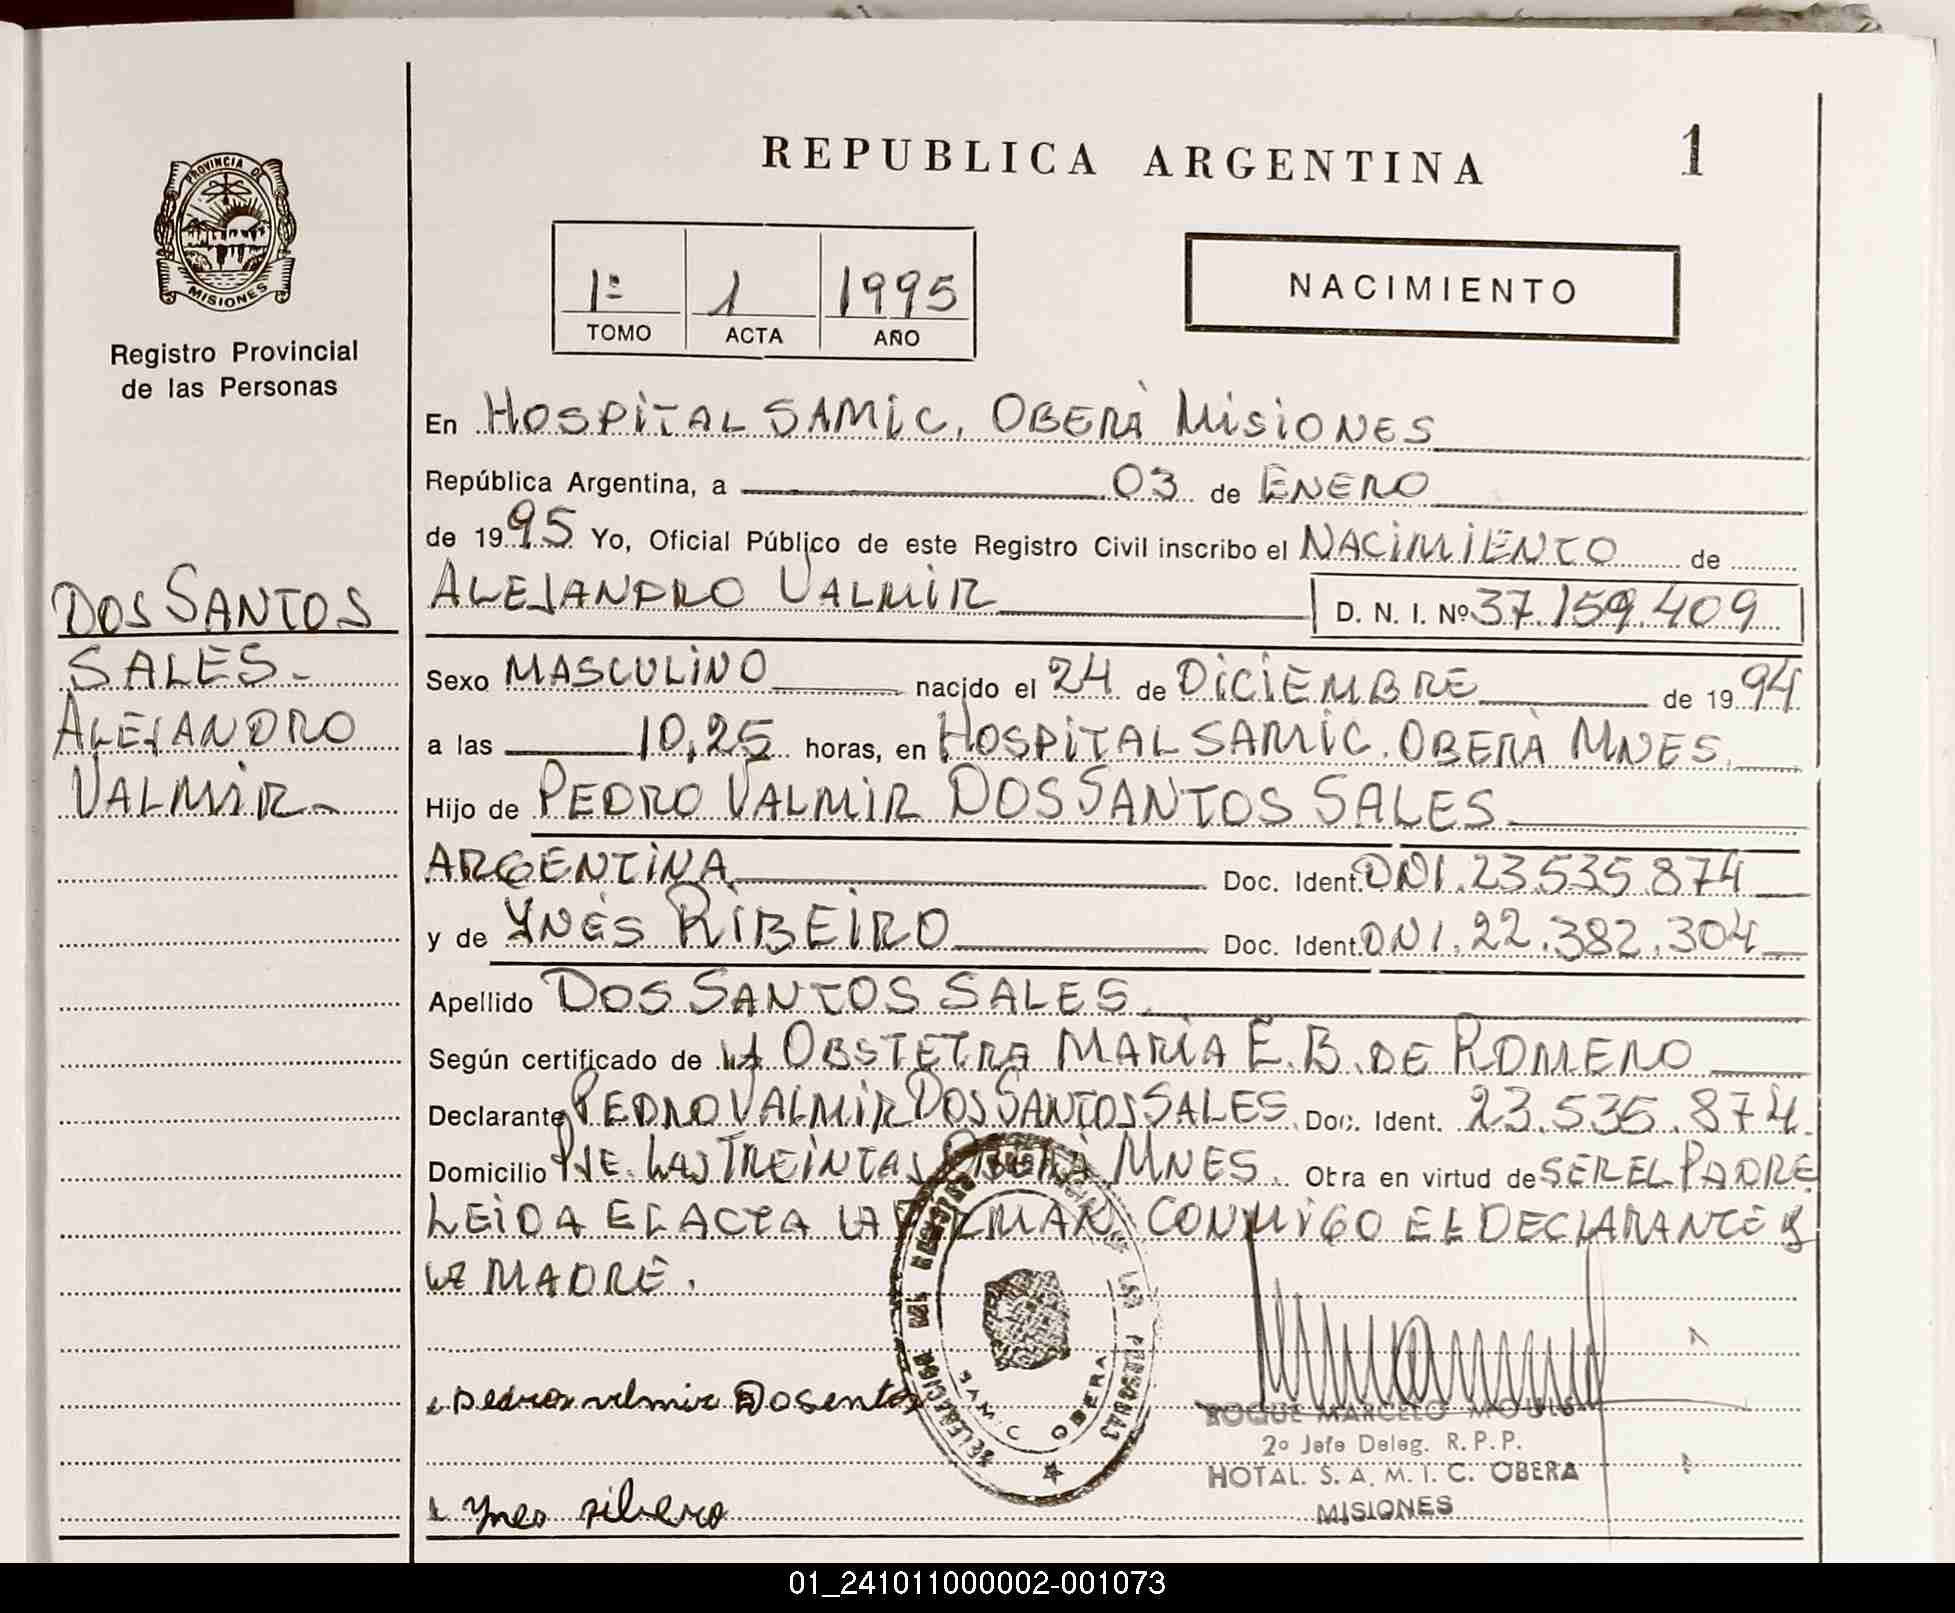 REPUBLICA ARGENTINA
1
PROVINCIA DE
MISIONES
Registro Provincial
de las Personas
1º 1 1995
TOMO ACTA AÑO
NACIMIENTO
DOS SANTOS
SALES.-
ALEJANDRO
VALMIR.-
En HOSPITAL SAMIC. OBERÁ MISIONES
República Argentina, a 03 de ENERO
de 1995 Yo, Oficial Público de este Registro Civil inscribo el NACIMIENTO de
ALEJANDRO VALMIR D. N. I. Nº 37.159.409
Sexo MASCULINO nacido el 24 de DICIEMBRE de 1994
a las 10,25 horas, en HOSPITAL SAMIC. OBERÁ MNES.
Hijo de PEDRO VALMIR DOS SANTOS SALES
ARGENTINA Doc. Ident. DNI. 23.535.874
y de YNÉS RIBEIRO Doc. Ident. DNI. 22.382.304
Apellido DOS SANTOS SALES
Según certificado de LA OBSTETRA MARÍA E. B. DE ROMERO
Declarante PEDRO VALMIR DOS SANTOS SALES Doc. Ident. 23.535.874.
Domicilio PJE. LAS TREINTAS OBERÁ MNES. Obra en virtud de SER EL PADRE
LEIDA EL ACTA LA FIRMAN CONMIGO EL DECLARANTE Y
LA MADRE.
pedro valmir Dosentos
Ynes ribero
SAMIC OBERA
ROQUE MARCELO
2º Jefe Deleg. R.P.P.
HOTAL. S. A. M. I. C. OBERA
MISIONES
01_241011000002-001073